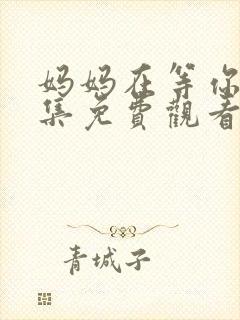 妈妈在等你
集免費觀看
青城子